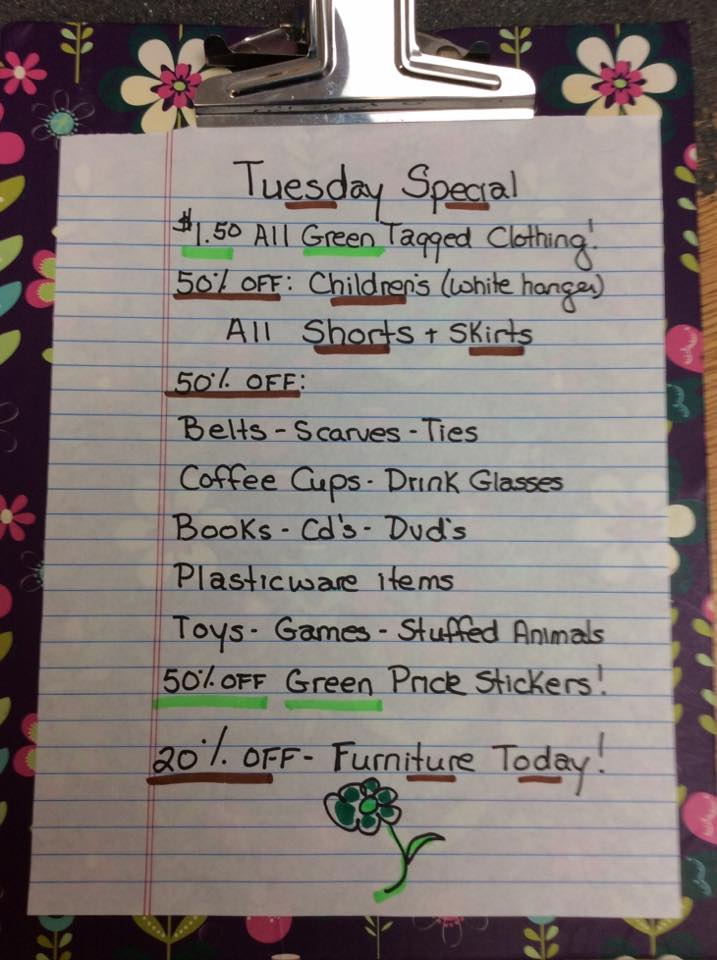 Tuesday Special
$1.50 All Green Tagged Clothing!
50% OFF: Children's (white hanger)
All Shorts + Skirts
50% OFF:
Belts - Scarves - Ties
Coffee Cups - Drink Glasses
Books - Cd's - Dvd's
Plasticware items
Toys - Games - Stuffed Animals
50% OFF Green Price Stickers!
20% OFF - Furniture Today!